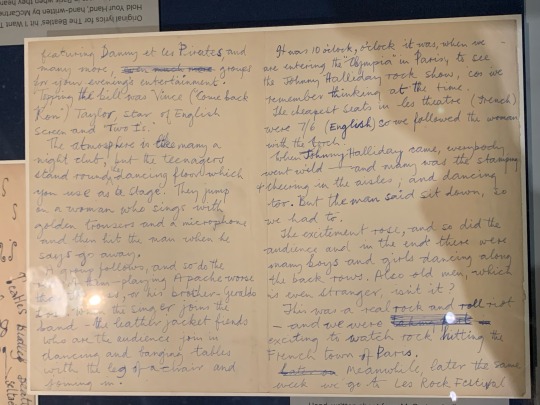 Original lyrics for The Beatles' 'I Want T
Hold Your Hand', hand-written by McCartne
featuring Danny et les Pirates and
many more, groups
for your evening's entertainment.
Topping the bill was Vince ("Come back
Ken") Taylor, star of English
screen and Two I's.
The atmosphere is like many a
night club, but the teenagers
stand round the dancing floor which
you use as a stage. They jump
on a woman who sings with
golden trousers and a microphone
and then hit the man when he
says go away.
A group follows, and so do the
playing Apache worse
or his brother - Geraldo
the singer joins the
band - the leather jacket fiends
who are the audience join in
dancing and banging tables
with the leg of a chair and
joining in.
It was 10 o'clock, o'clock it was, when we
are entering the "Olympia" in Paris, to see
the Johnny Halliday rock show, cos we
remember thinking at the time.
The cheapest seats in les theatre (French)
were 7/6 (English) so we followed the woman
with the torch.
When Johnny Halliday came, everybody
went wild — and many was the stamping
+ cheering in the aisles, and dancing
too. But the man said sit down, so
we had to.
The excitement rose, and so did the
audience and in the end there were
many boys and girls dancing along
the back rows. Also old men, which
is even stranger, isn't it?
This was a real rock and roll riot
- and we were
exciting to watch rock hitting the
French town of Paris.
Meanwhile, later the same
week we go to Les Rock Festival